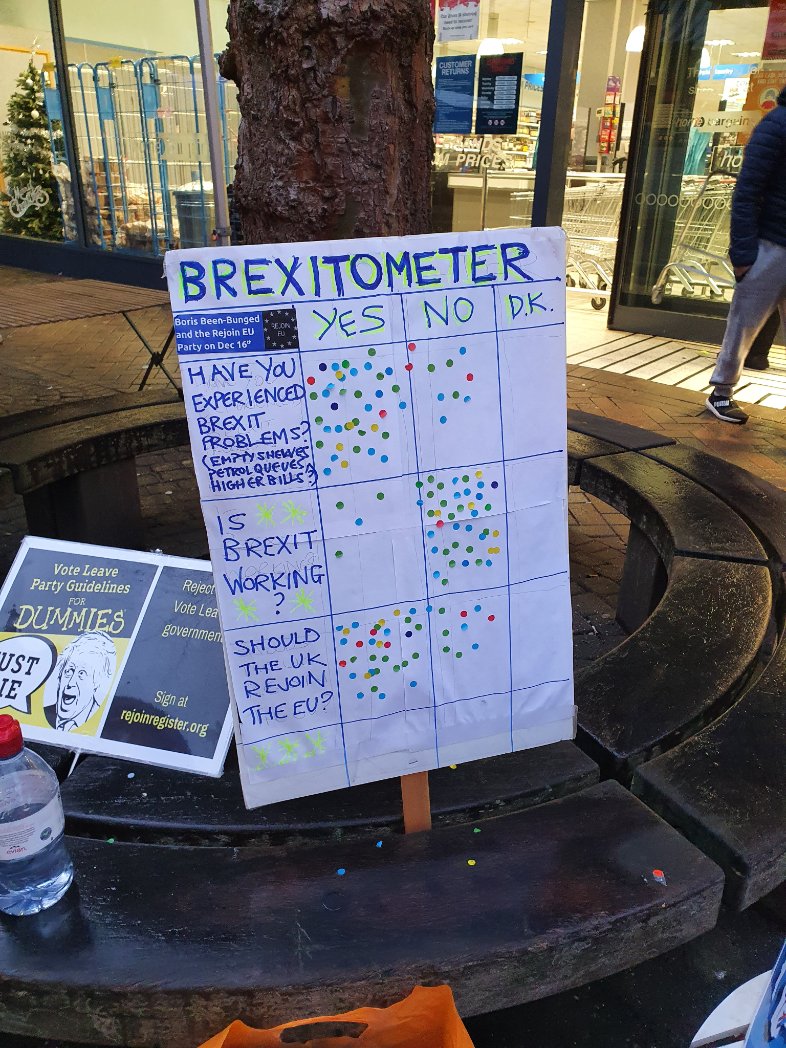 CUSTOMER
RETURNS
PRICES
BREXITOMETER
Boris Been-Bunged
and the Rejoin EU
Party on Dec 16th
REJOIN
EU
YES
NO
D.K.
HAVE YOU
EXPERIENCED
BREXIT
PROBLEMS?
(EMPTY SHELVES
PETROL QUEUES,
HIGHER BILLS?)
IS
BREXIT
WORKING
?
SHOULD
THE UK
REJOIN
THE EU?
Vote Leave
Party Guidelines
FOR
DUMMIES
UST
IE
Reject
Vote Lea
governmen
Sign at
rejoinregister.org